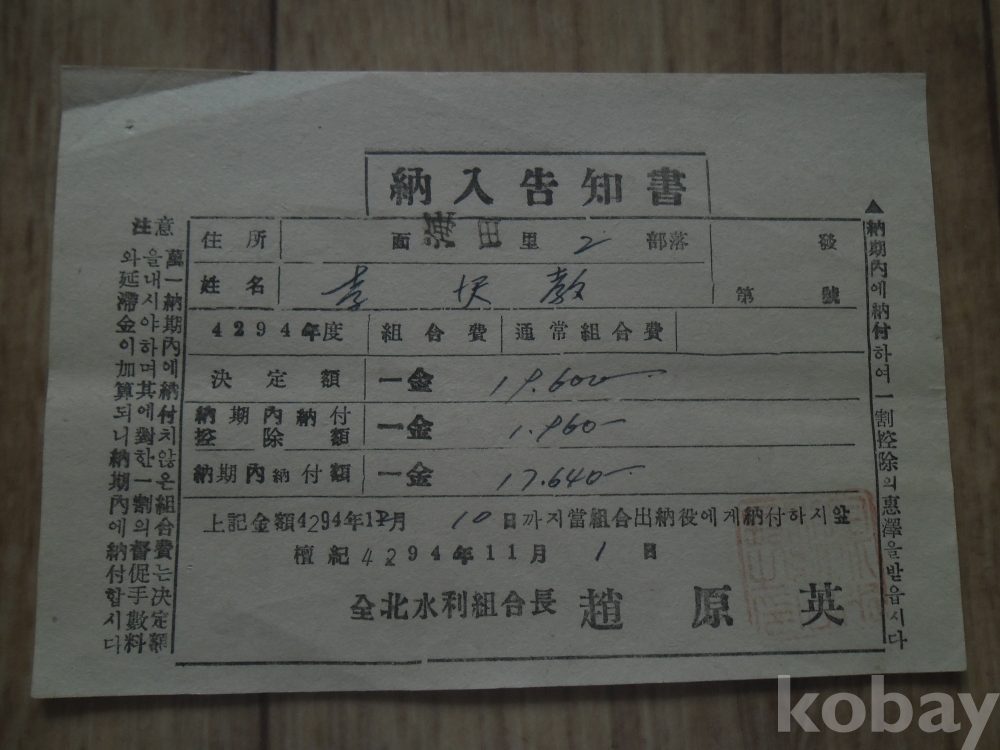 納入告知書
住所 面 田 里 2 部落 發
姓名 李 敎 第 號
4294年度 組合費 通常組合費
決定額 一金 19.600
納期內納付控除額 一金 1.960
納期內納付額 一金 17.640
上記金額4294年12月 10日까지當組合出納役에게納付하시앞
檀紀4294年11月 1日
全北水利組合長 趙原英
▲納期內에納付하여一割控除의惠澤을받읍시다
注意
萬一納期內에納付치않은組合費는決定額
을내시야하며其에對한一割의督促手數料
와延滯金이加算되니納期內에納付합시다
kobay